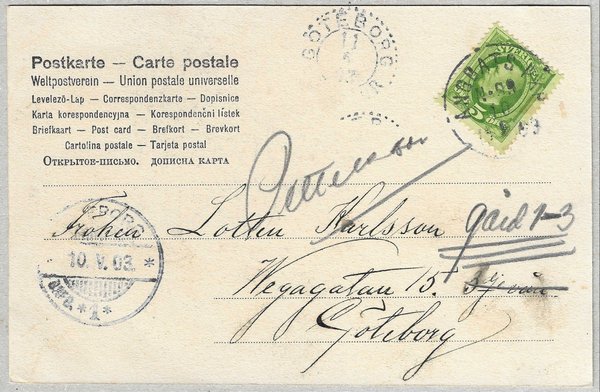 GÖTEBORG
11
5
Postkarte — Carte postale
Weltpostverein — Union postale universelle
Levelezö-Lap — Correspondenzkarte — Dopisnice
Karta korespondencyjna — Korespondenční lístek
Briefkaart — Post card — Brefkort — Brevkort
Cartolina postale — Tarjeta postal
Открытое-письмо. дописна карта
SVERIGE
5
Pettersson
Fröken Lotten Karlsson gård 1-3
10. V. 03.
Wegagatan 15.
Göteborg